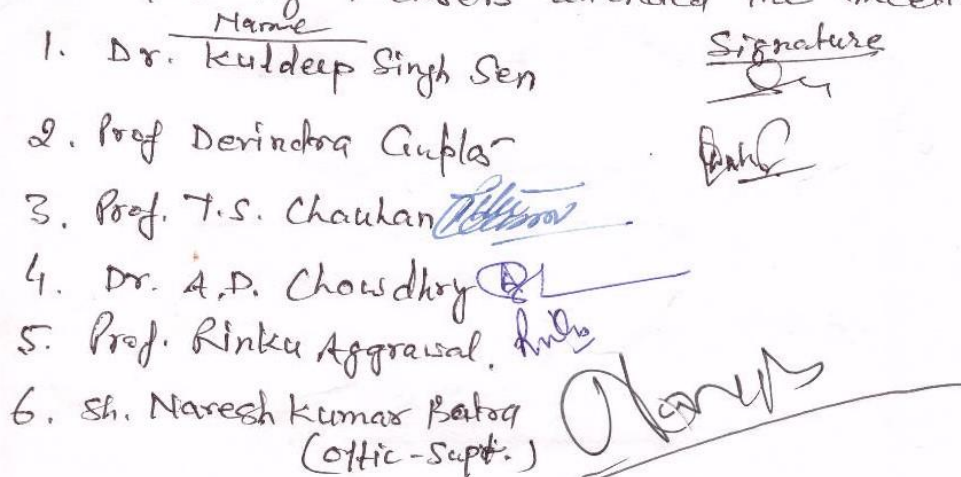 attended the
Name Signature
1. Dr. Kuldeep Singh Sen
2. Prof Devindra Gupta
3. Prof. T.S. Chauhan
4. Dr. A.D. Chowdhry
5. Prof. Rinku Aggrawal.
6. Sh. Naresh Kumar Batra
(Offic-Supt.)